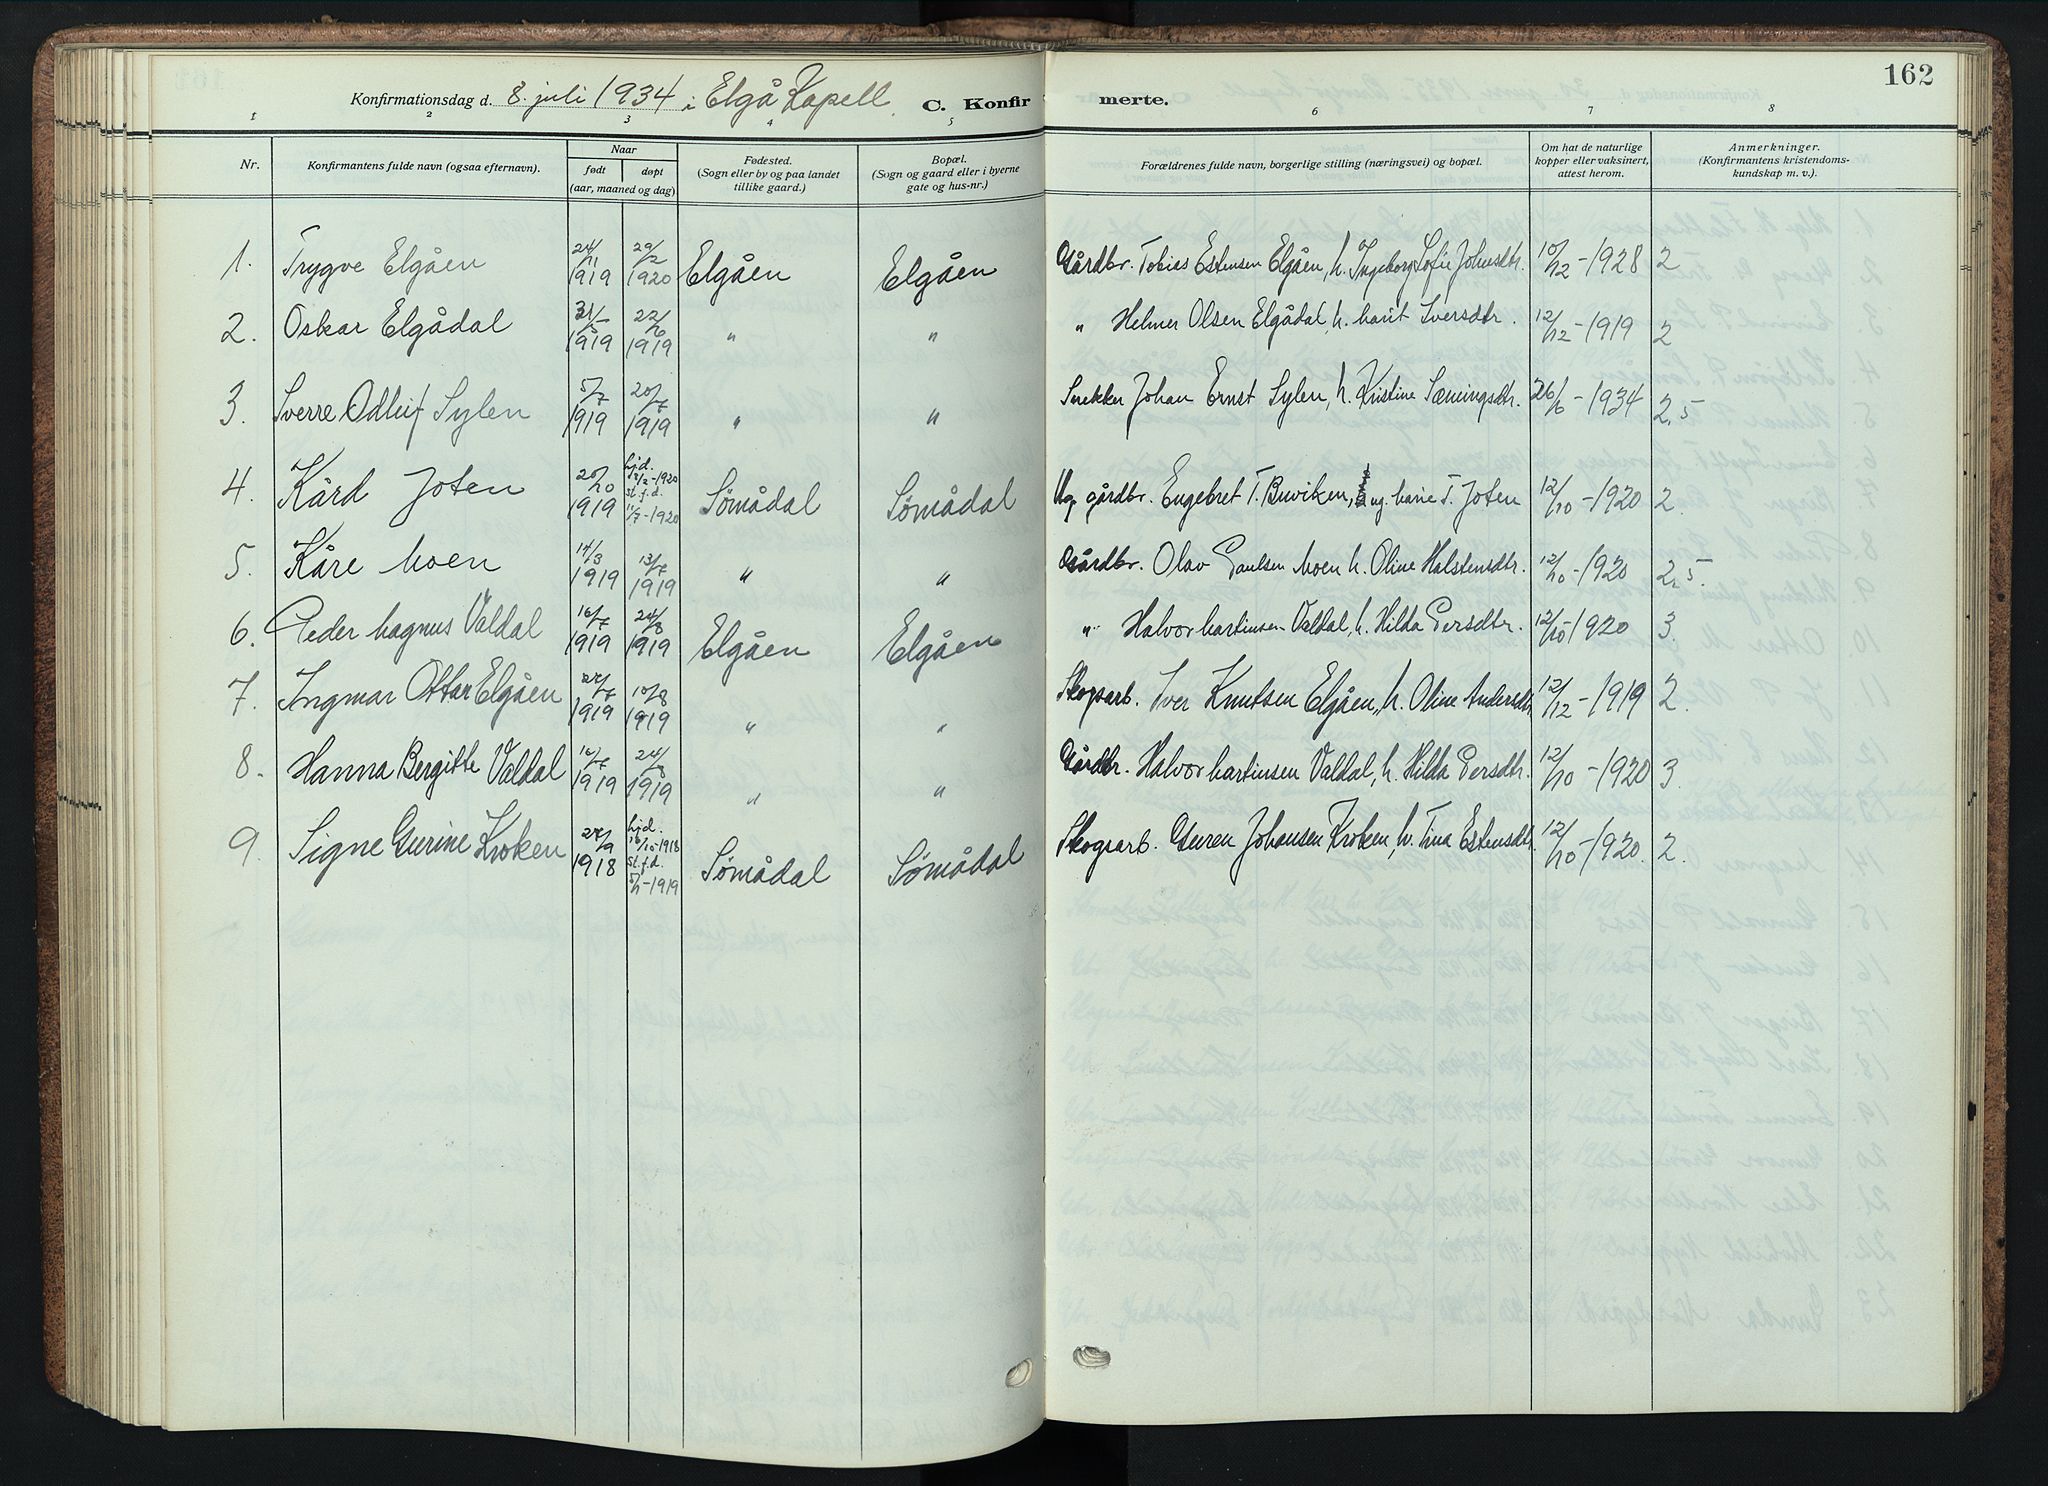 162
Konfirmationsdag d. 8. juli 1934 i Elgå Kapell. C. Konfirmerte.
1 2 3 4 5 6 7 8
Nr. Konfirmantens fulde navn (ogsaa efternavn). Naar født døpt (aar, maaned og dag) Fødested. (Sogn eller by og paa landet tillike gaard.) Bopæl. (Sogn og gaard eller i byerne gate og hus-nr.) Forældrenes fulde navn, borgerlige stilling (næringsvei) og bopæl. Om hat de naturlige kopper eller vaksinert, attest herom. Anmerkninger. (Konfirmantens kristendomskundskap m. v.).
1. Trygve Elgåen 24/11 1919 29/2 1920 Elgåen Elgåen Gårdbr. Tobias Estensen Elgåen, h. Ingeborg Sofie Johnsdtr. 10/12-1928 2
2. Oskar Elgådal 31/5 1919 22/6 1919 " " " Helmer Olsen Elgådal, h. Marit Iversdtr. 12/12-1919 2
3. Sverre Odleif Sylen 5/7 1919 20/7 1919 " " Snekker Johan Ernst Sylen, h. Kristine Sæmingsdtr. 26/6-1934 2,5
4. Kård Joten 20/10 1919 hjd. 2/2-1920 st.f.d. 11/7-1920 Sømådal Sømådal Ug. gårdbr. Engebret T. Buviken, ug. Marie T. Joten 12/10-1920 2.
5. Kåre Moen 14/3 1919 13/7 1919 " " Gårdbr. Olav Paulsen Moen h. Oline Halstensdtr. 12/10-1920 2,5.
6. Peder Magnus Valdal 16/7 1919 24/8 1919 Elgåen Elgåen " Halvor Martinsen Valdal, h. Hilda Persdtr. 12/10-1920 3.
7. Ingmar Ottar Elgåen 1919 10/8 1919 " " Skogsarb. Iver Knutsen Elgåen, h. Oline Andersdtr. 12/12-1919 2.
8. Hanna Bergitte Valdal 16/7 1919 24/8 1919 " " Gårdbr. Halvor Martinsen Valdal, h. Hilda Persdtr. 12/10-1920 3.
9. Signe Gurine Kroken 24/9 1918 hjd. 16/10-1918 st.f.d. 5/7-1919 Sømådal Sømådal Skogsarb. Guren Johansen Kroken, h. Tina Estensdtr. 12/10-1920. 2.